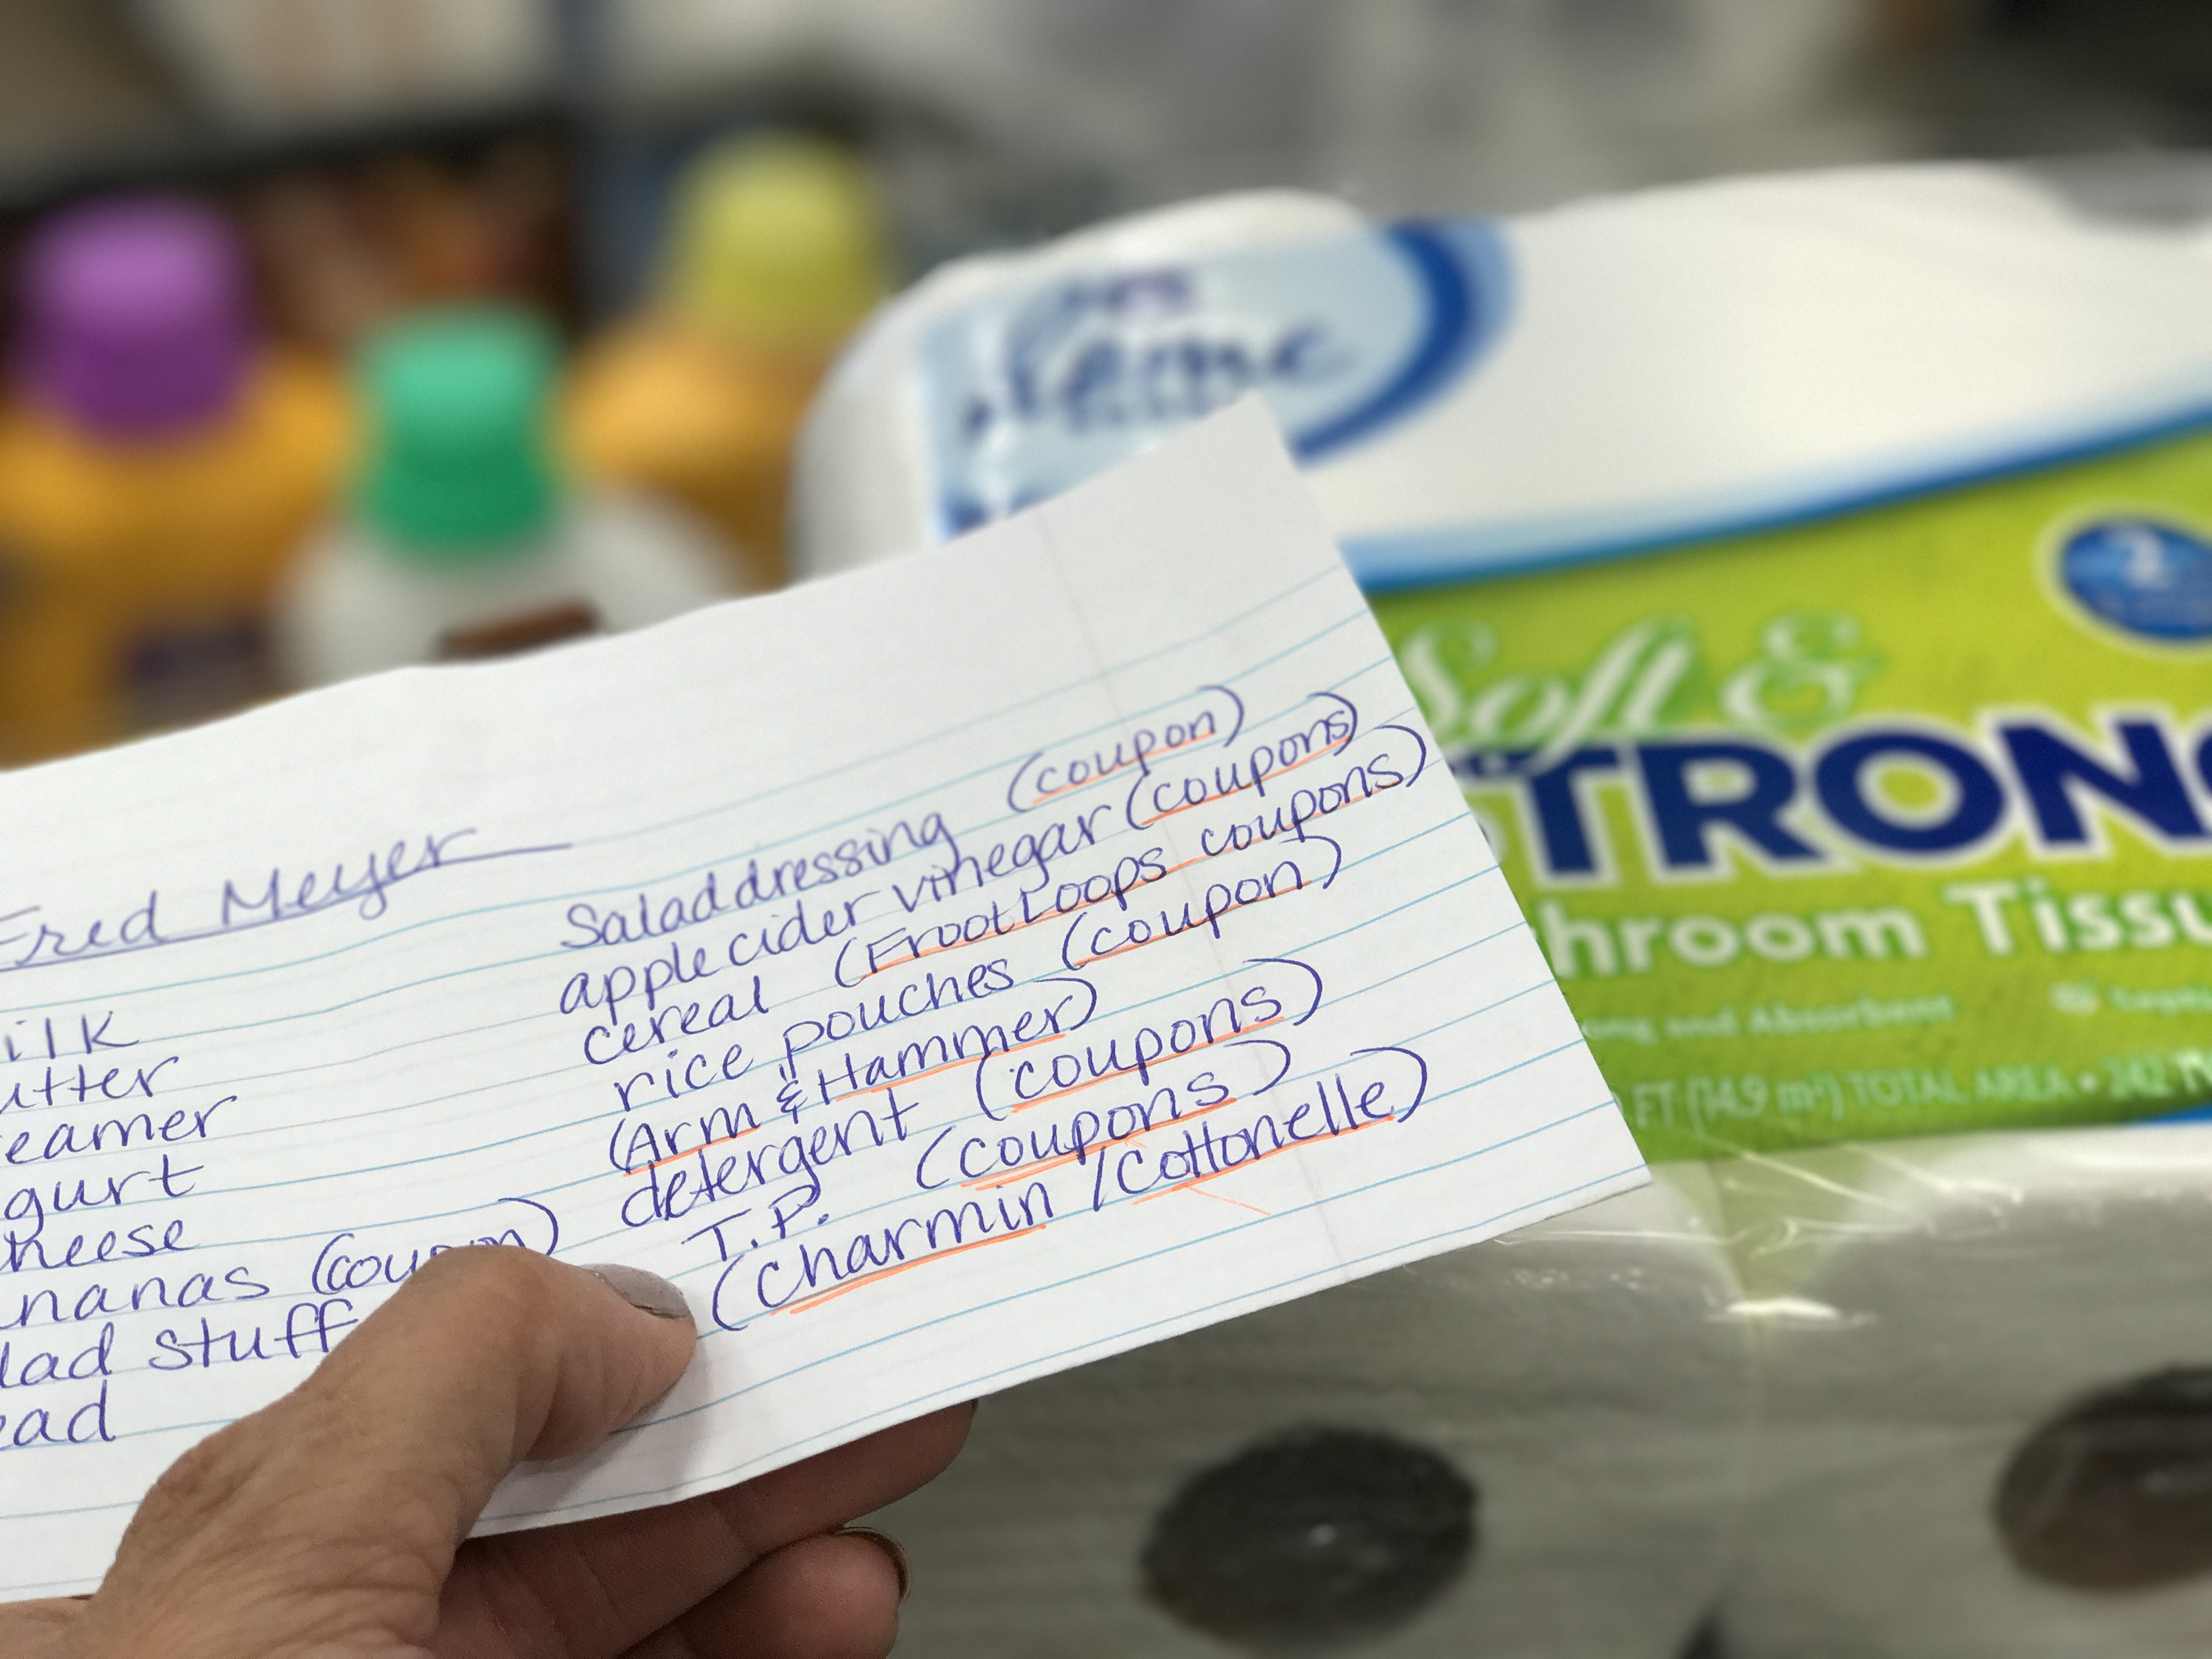 Fred Meyer
ilk
utter
eamer
gurt
heese
nanas (coupon)
lad stuff
ead
Salad dressing (coupon)
apple cider vinegar (coupons)
cereal (Froot Loops coupons)
rice pouches (coupon)
(Arm & Hammer)
detergent (coupons)
T.P. (coupons)
(Charmin / Cottonelle)
Home
Soft &
TRON
hroom Tissu
ong and Absorbent
FT (14.9 m²) TOTAL AREA • 242
2